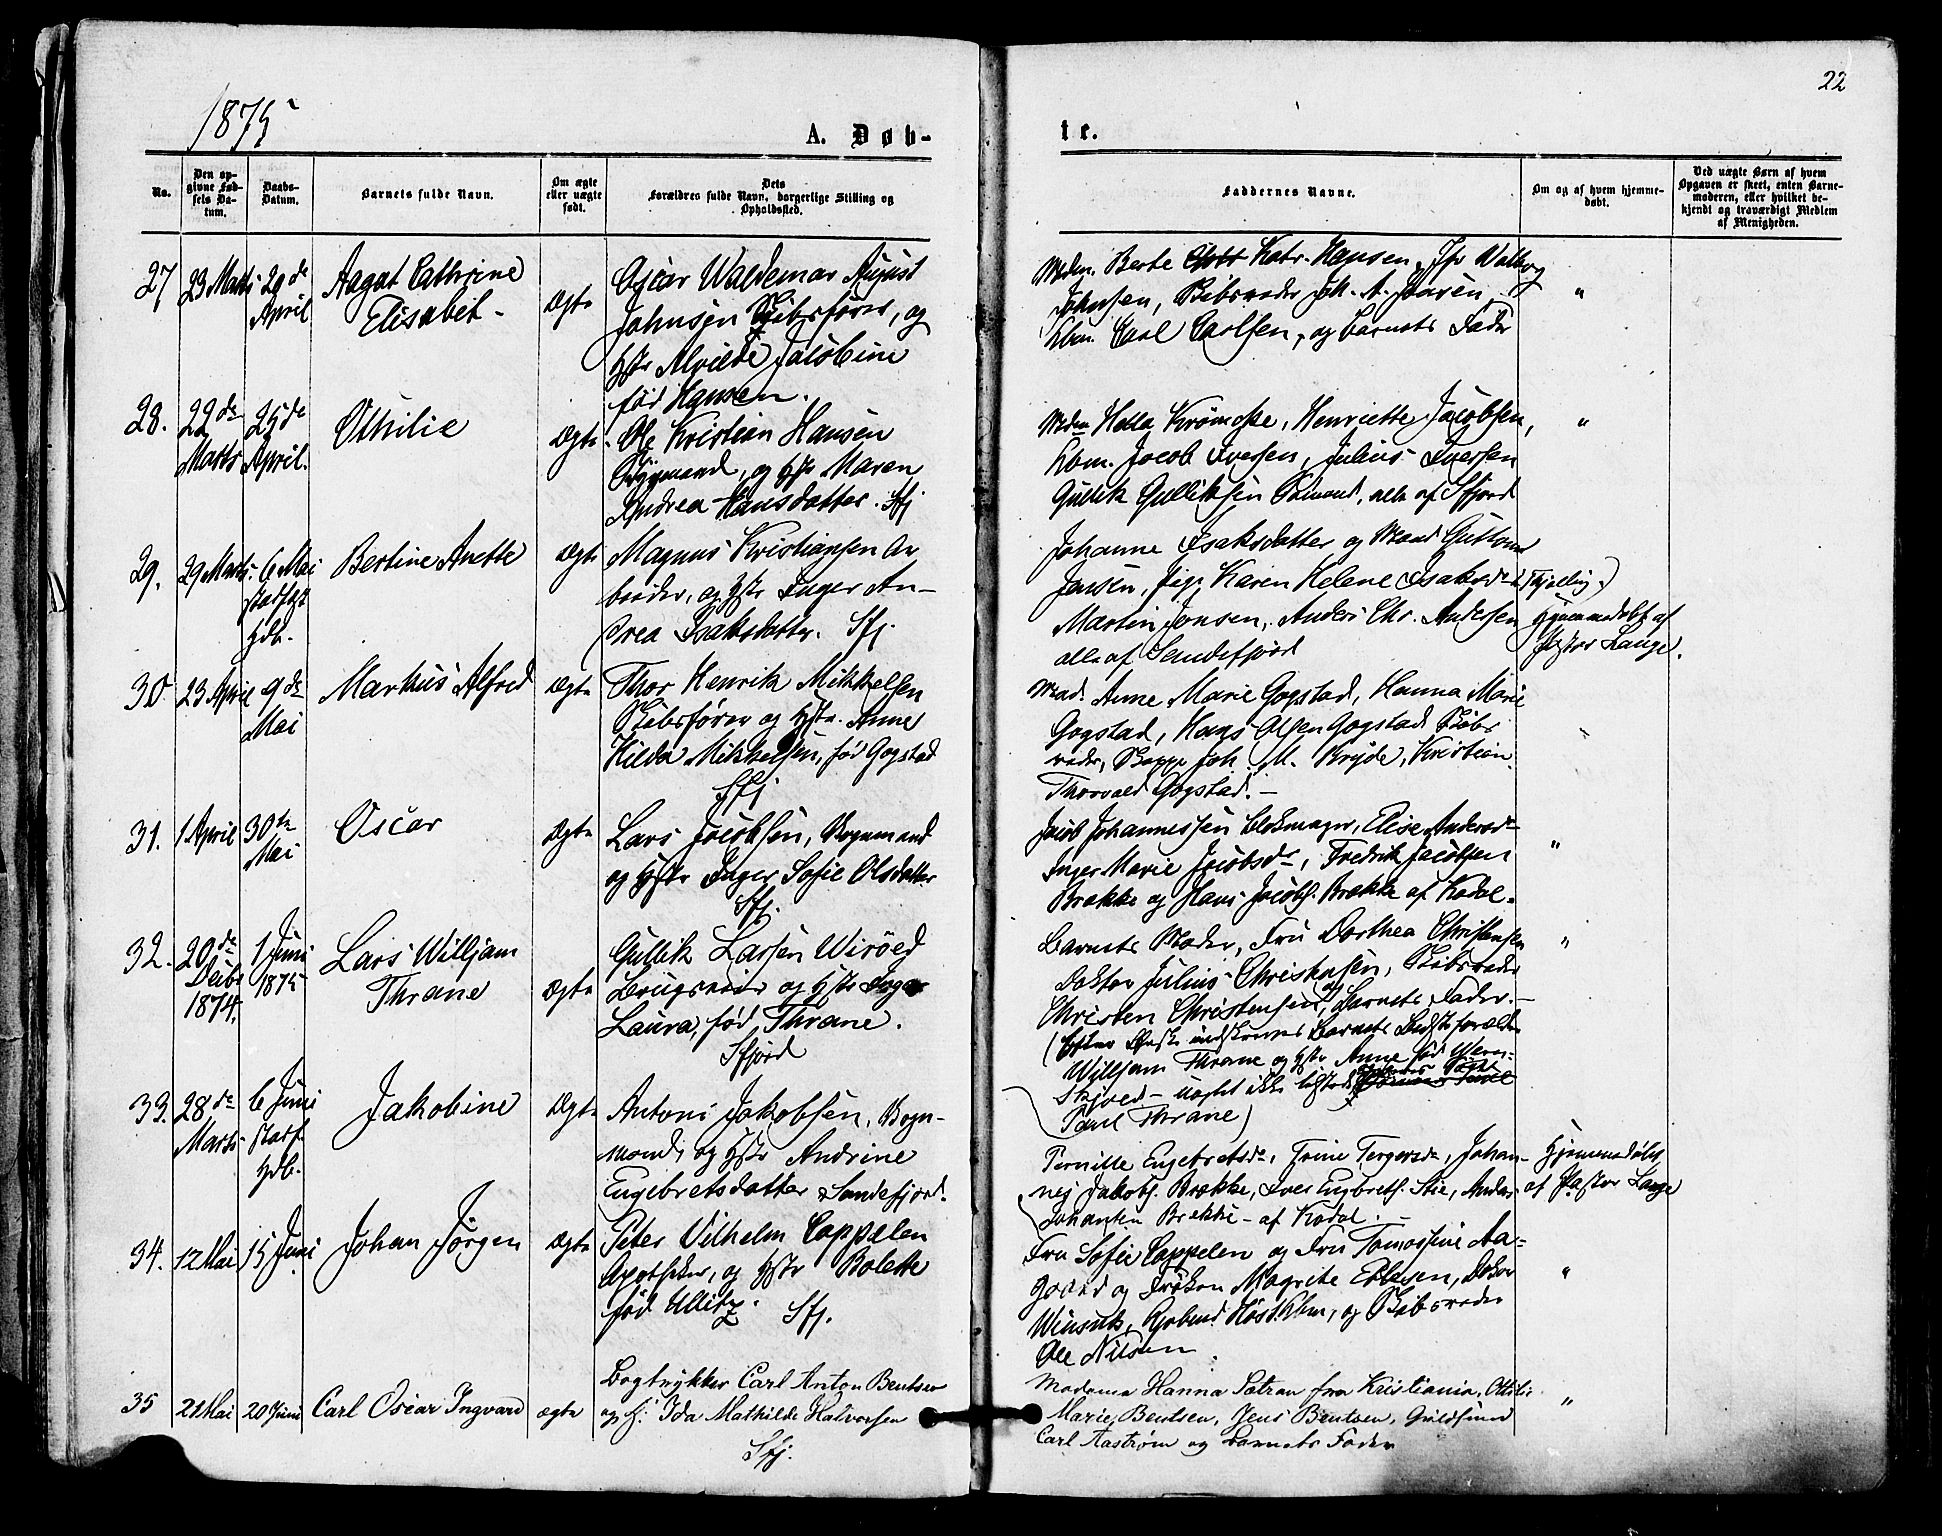 22
1875
A. Døb-
te.
No.
Den op-
givne Fød-
sels Da-
tum.
Daabs-
Datum.
Barnets fulde Navn.
Om ægte
eller uægte
født.
Dets
Forældres fulde Navn, borgerlige Stilling og
Opholdssted.
Faddernes Navne.
Om og af hvem hjemme-
døbt.
Ved uægte Børn af hvem
Opgaven er skeet, enten Barne-
moderen, eller hvilket be-
kjendt og troværdigt Medlem
af Menigheden.
27 23 Marts 29de
April
Aagot Cathrine
Elisabet
Ægte
Oscar Waldemar August
Johnsen Skibsfører, og
Hstr Alvilde Jacobine
født Hansen.
Madm. Berte Katr. Hansen, Jfr Valborg
Johnsen, Skibsreder Joh. A.
Kbm. Carl Carlsen, og Barnets Fader
"
28. 22de
Marts
25de
April.
Othilie
Ægte
Ole Kristian Hansen
Bygmand, og Hstr Maren
Andrea Hansdatter. Sfj
Madm Helle Henriette Jacobsen,
Kbm. Jacob Iversen, Julius Iversen
Gullik Gulliksen alle af Sfjord
"
29. 29 Marts 6 Mai
stadfæst
Hdb.
Bertine Anette
Ægte
Magnus Kristiansen Ar
beider, og Hstr Inger An-
drea Isaksdatter. Sfj.
Johanne Isaksdatter og Mand Guttorm
Jensen, Pige Karen Helene Isaksdr (Tjølling.)
Martin Jonsen, Anders Chr. Andersen
alle af Sandefjord
Hjemmedøbt af
Pastor Lange.
30 23 April 9de
Mai
Markus Alfred
Ægte
Thor Henrik Mikkelsen
Skibsfører og Hstr. Anne
Hilda Mikkelsen, født Gogstad
Sfj
Mad. Anne Marie Gogstad, Hanna Marie
Gogstad, Hans Olsen Gogstad Skibs
reder, Joh. M. Bryde, Kristian
Thorvald Gogstad.
31. 1 April 30te
Mai
Oscar
Ægte
Lars Jacobsen, Bygmand
og Hstr Inger Sofie Olsdatter
Sfj.
Jacob Johannessen Blokmager, Elise Andersdr
Inger Marie Jacobsdr, Fredrik Jacobsen
Brække og Hans Jacobs. Brække af Kodal.
"
32. 20de
Decbr
1874.
1 Juni
1875
Lars Willjam
Thrane
Ægte
Gullik Larsen Wirøed
Brugseier og Hstr Inger
Laura, født Thrane.
Sfjord
Barnets Moder, Fru Dorthea Christensen
Doktor Julius Christensen, Skibsreder
Christen Christensen, og Barnets Fader.
(Efter Ønske indskrives Barnets Bedsteforældre
Willjam Thrane og Hstr Anne født
Skjoed - uagtet ikke tilstede
Paul Thrane)
"
33. 28de
Marts
6 Juni
stadf.
Hdb.
Jakobine
Ægte
Antoni Jakobsen, Bygn-
mand, og Hstr Andrine
Engebretsdatter Sandefjord.
Pernille Engebretsdr, Trine Johan-
nes Jakobs. Brække, Iver Engbrets. Anders
Johansen Brække - af Kodal.
Hjemmedøbt
af Pastor Lange
34. 12 Mai 15 Juni
Johan Jørgen
Ægte
Peter Vilhelm Cappelen
Apotheker, og Hstr Bolette
født Ullitz. Sfj.
Fru Sofie Cappelen og Fru Aa-
gaard og Frøken Magrite Doktor
Høst Kbm, og Skibsreder
Ole Nilsen.
"
35 21 Mai 20 Juni
Carl Oscar Ingvard
ægte
Bogtrykker Carl Anton Bentsen
og H: Ida Mathilde Halvorsen
Sfj.
Madame Hanna Sætran fra Kristiania, Ottilie
Marie Bentsen, Jens Bentsen, Guldsmed
Carl Aastrøm og Barnets Fader
"